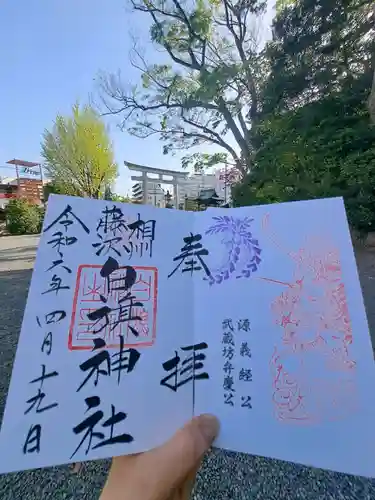 奉拝
源義経公
武蔵坊弁慶公
相州
藤沢
白旗神社
令和六年四月十九日